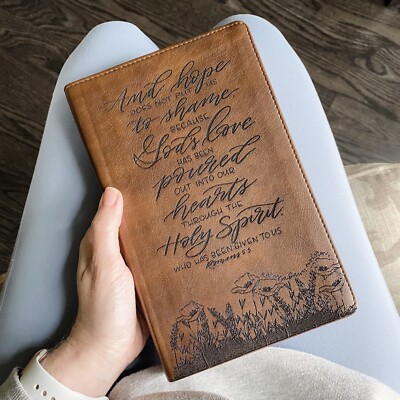 And hope
DOES NOT PUT US
to shame,
BECAUSE
God's love
HAS BEEN
poured
OUT INTO OUR
hearts
THROUGH THE
Holy Spirit,
WHO HAS BEEN GIVEN TO US
Romans 5:5